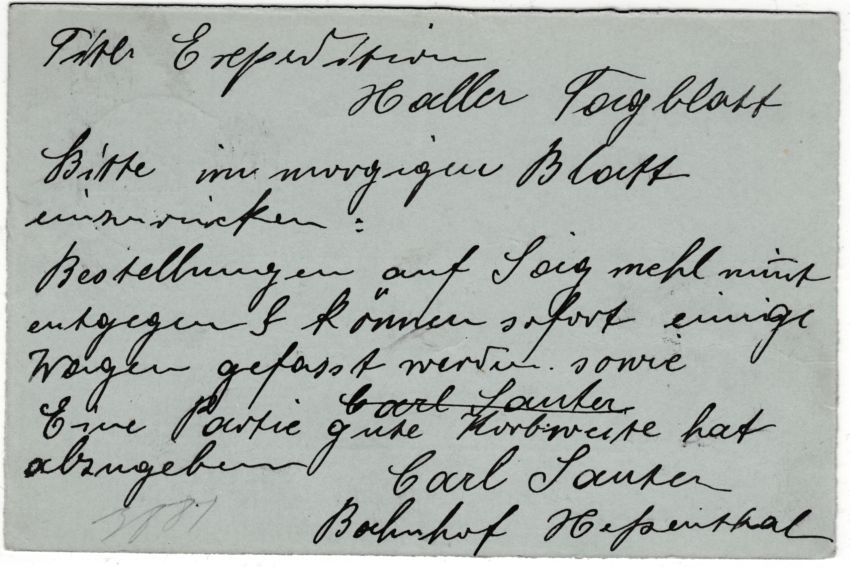 Titl. Expedition
Haller Tagblatt
Bitte im morgigen Blatt
einzurücken:
Bestellungen auf Saigmehl nimt
entgegen & können sofort einige
Wagen gefasst werden. sowie
Carl Sauter
Eine Partie gute Korbweite hat
abzugeben
Carl Sauter
Bahnhof Hessenthal